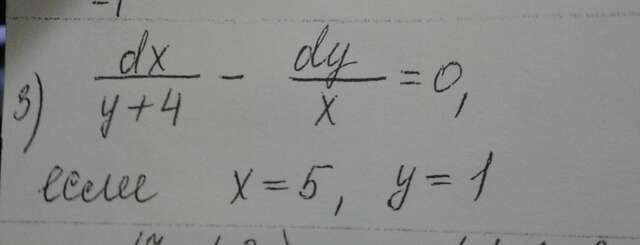 3) dx/(y+4) - dy/x = 0,
если x = 5, y = 1